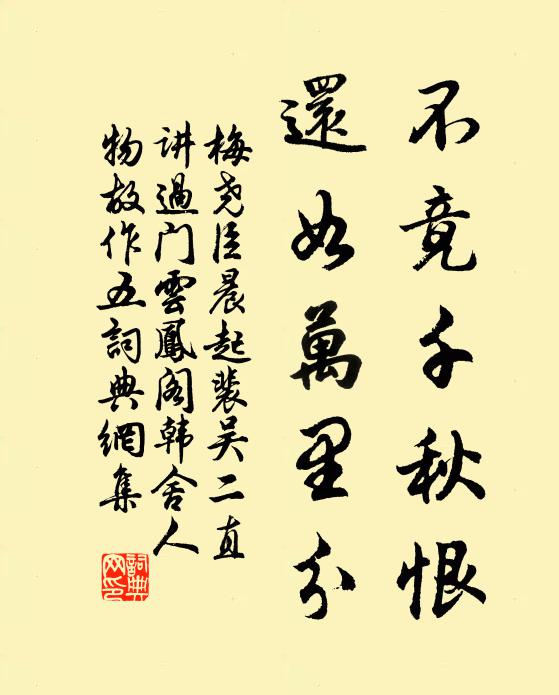 不竟千秋恨
還如萬里分
梅尧臣晨起裴吴二直
讲過门雲鳳阁韩舍人
物故作五詞典網集
詞典網印